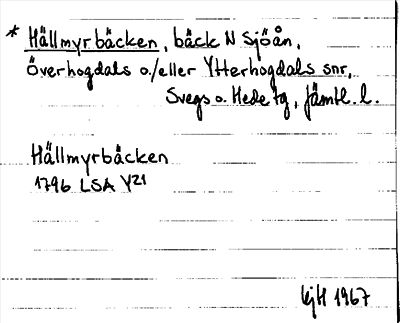 * Hällmyrbäcken, bäck N Sjöån,
Överhogdals o./eller Ytterhogdals snr,
Svegs o. Hede tg, Jämtl. l.
Hällmyrbäcken
1796 LSA Y21
kjH 1967